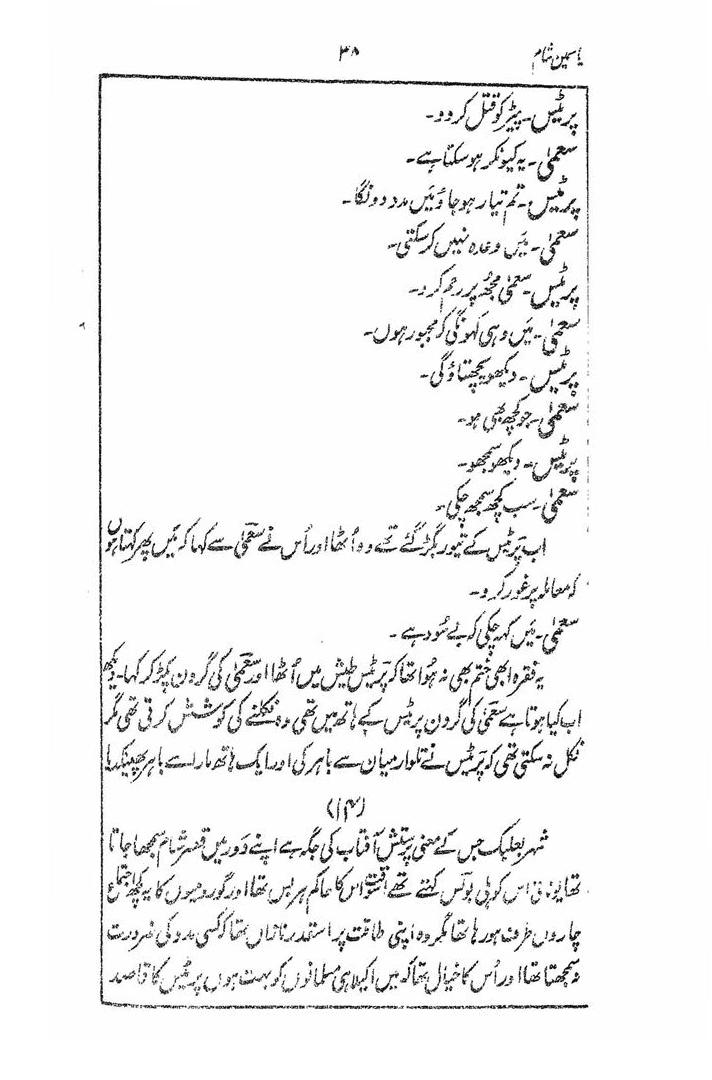 یاسمین شام
۳۸
پرٹیس۔ پیٹر کو قتل کر دو۔
سعمٰی۔ یہ کیونکر ہو سکتا ہے۔
پرٹیس۔ تم تیار ہو جاؤ میں مدد دونگا۔
سعمٰی۔ میں وعدہ نہیں کر سکتی۔
پرٹیس۔ سعمٰی مجھ پر رحم کرو۔
سعمٰی۔ میں وہی کہونگی کہ مجبور ہوں۔
پرٹیس۔ دیکھو پچھتاؤ گی۔
سعمٰی۔ جو کچھ بھی ہو۔
پرٹیس۔ دیکھو سمجھو۔
سعمٰی۔ سب کچھ سمجھ چکی۔
اب پرٹیس کے تیور بگڑ گئے تھے وہ اُٹھا اور اُس نے سعمٰی سے کہا کہ میں پھر کہتا ہوں
کہ معاملہ پر غور کر لو۔
سعمٰی۔ میں کہہ چکی کہ بے سُود ہے۔
یہ فقرہ ابھی ختم بھی نہ ہُوا تھا کہ پرٹیس طیش میں اُٹھا اور سعمٰی کی گردن پکڑ کر کہا۔ دیکھ
اب کیا ہوتا ہے سعمٰی کی گردن پرٹیس کے ہاتھ میں تھی وہ نکلنے کی کوشش کرتی تھی مگر
نکل نہ سکتی تھی کہ پرٹیس نے تلوار میان سے باہر کی اور ایک ہاتھ مارا سے باہر پھینکدیا
(۱۴)
شہر بعلبک جس کے معنی پرستش آفتاب کی جگہ ہے اپنے دَور میں قصر شام سمجھا جاتا
تھا یونانی اس کو ہلی پولس کہتے تھے اسوقت اس کا حاکم ہربس تھا اور گو رومیوں کا یہ کچھ اجتماع
چاروں طرف ہو رہا تھا مگر وہ اپنی طاقت پر اسقدر نازاں تھا کہ کسی مدد کی ضرورت
نہ سمجھتا تھا اور اُس کا خیال تھا کہ میں اکیلا ہی مسلمانوں کو بہت ہوں پرٹیس کا قاصد